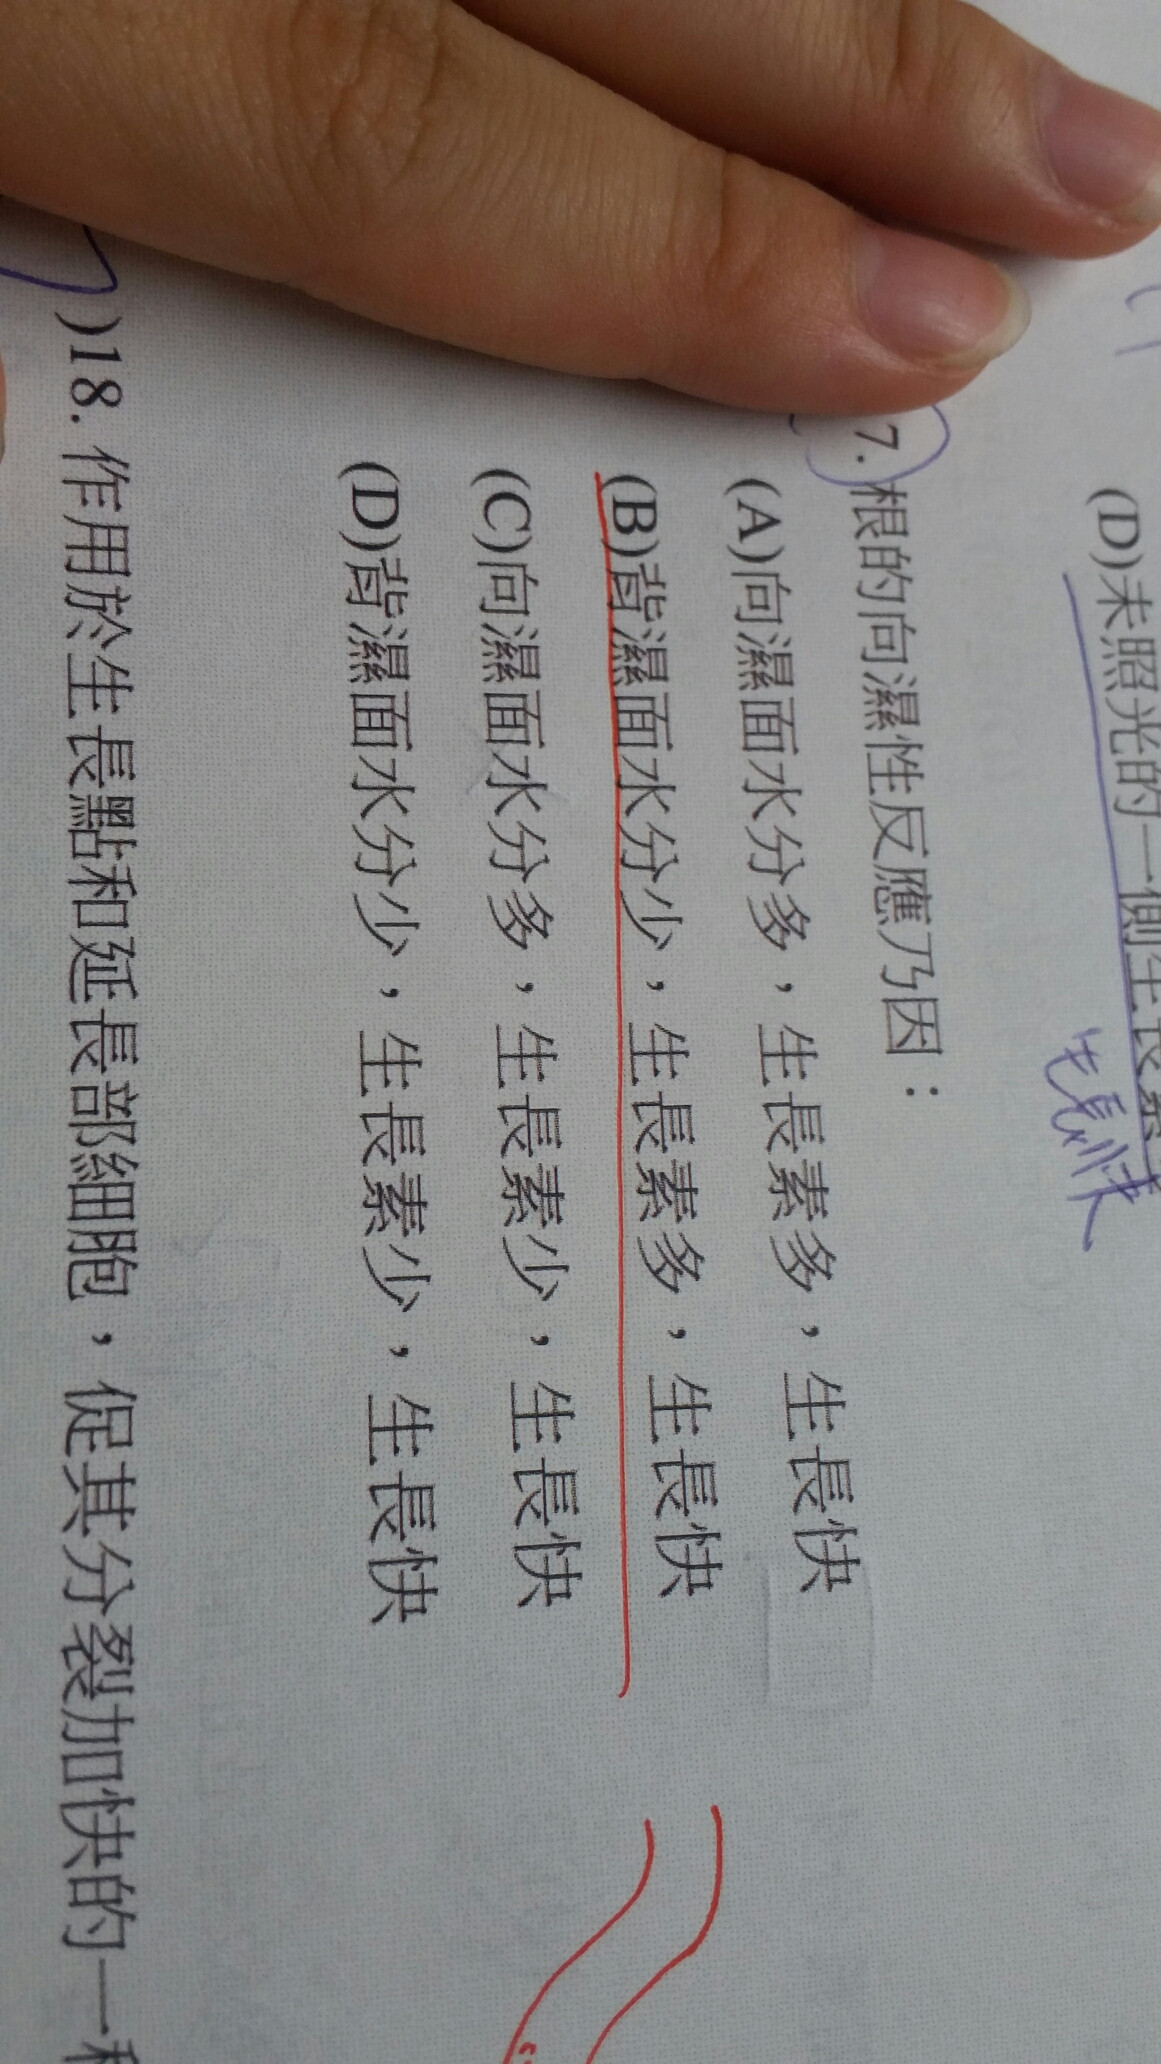 (D)未照光的一側生長素
生長快
7. 根的向濕性反應乃因：
(A)向濕面水分多，生長素多，生長快
(B)背濕面水分少，生長素多，生長快
(C)向濕面水分多，生長素少，生長快
(D)背濕面水分少，生長素少，生長快
)18. 作用於生長點和延長部細胞，促其分裂加快的一